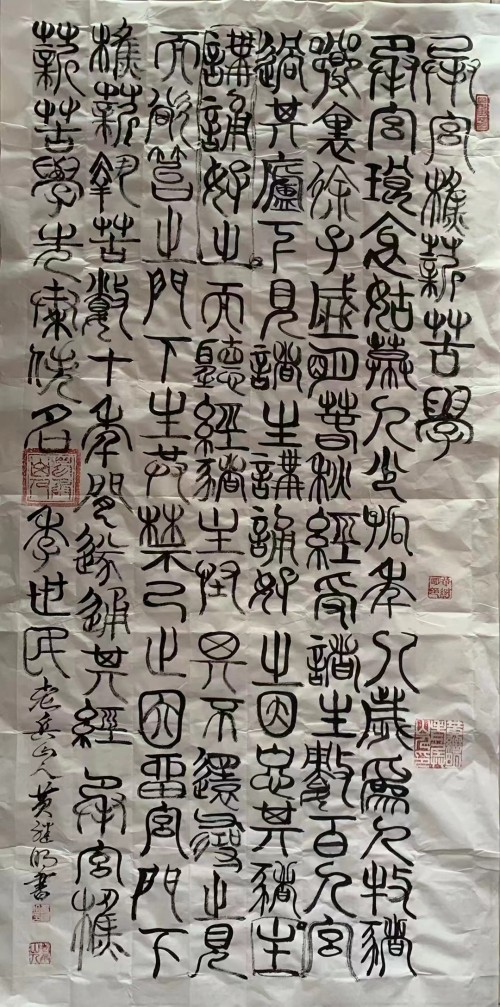 承宮樵薪苦學
承宮琅邪姑幕人少孤年八歲為人牧豬
鄉里徐子盛明春秋經受諸生數百人宮
過其廬下見諸生講誦好之因忘其豬生
講誦好之而聽經豬生怪其不還尋之見
而欲笞之門下生共禁乃止因留宮門下
樵薪執苦數十年間遂通其經承宮樵
薪苦學先名李世民
老兵山人黃繼明書